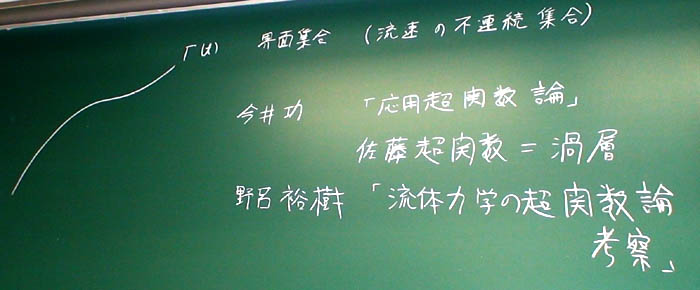 Γ(t) 界面集合 (流速の不連続集合)
今井功 「応用超関数論」
佐藤超関数 = 渦層
野呂裕樹 「流体力学の超関数論
考察」